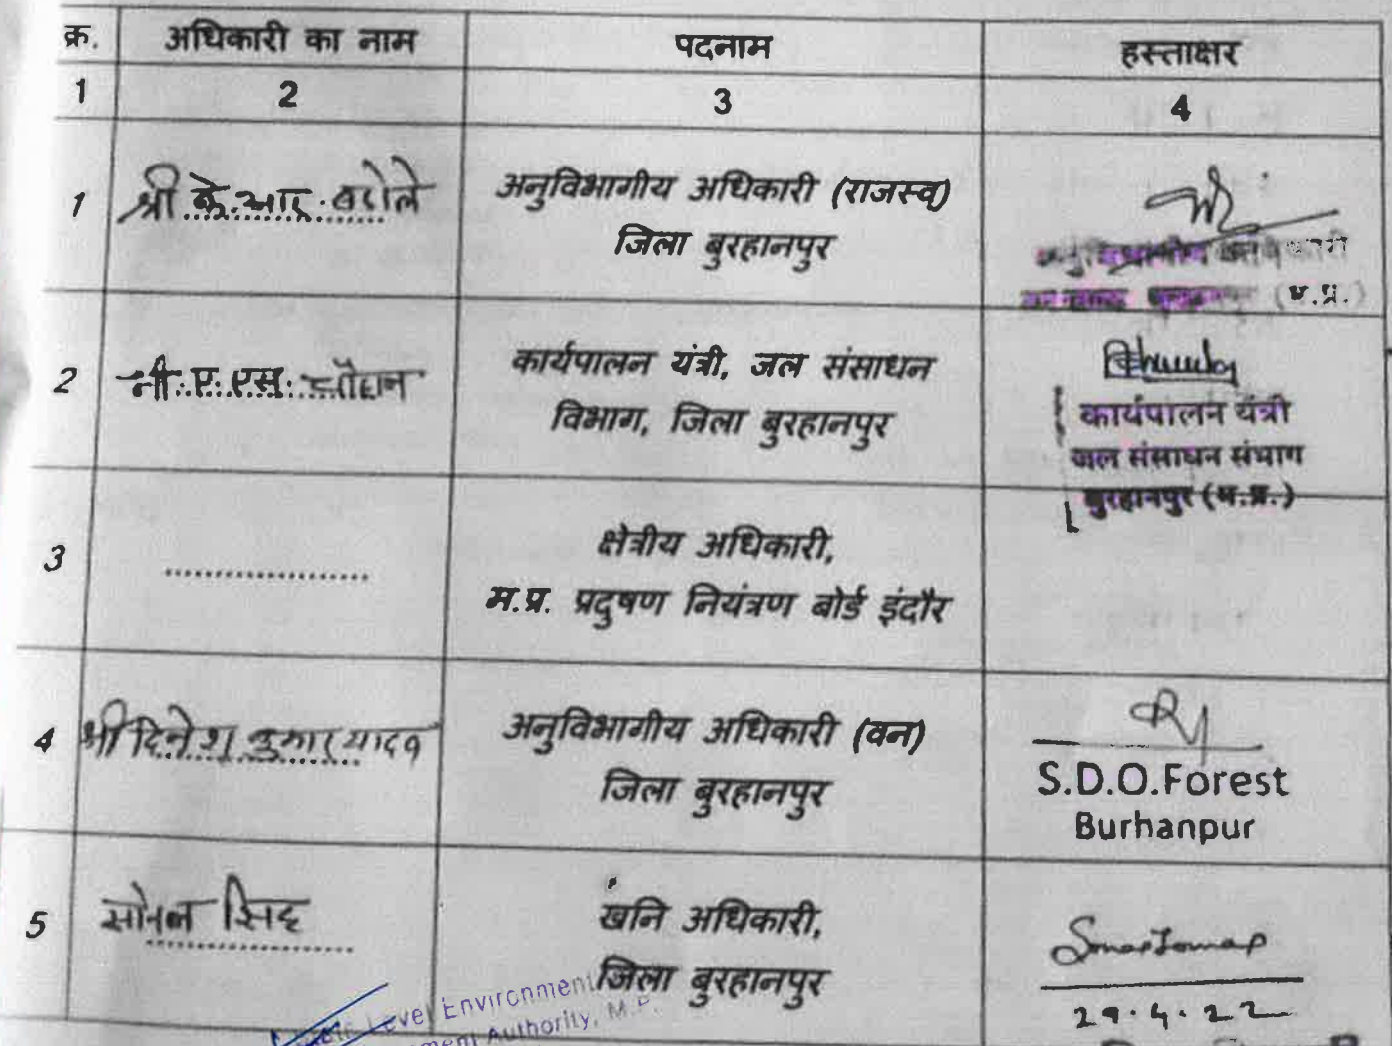 क्र. अधिकारी का नाम पदनाम हस्ताक्षर
1 2 3 4
1 श्री के.आर. बरोले अनुविभागीय अधिकारी (राजस्व)
जिला बुरहानपुर
अनुविभागीय अधिकारी
(म.प्र.)
2 ए.एस. कार्यपालन यंत्री, जल संसाधन
विभाग, जिला बुरहानपुर
कार्यपालन यंत्री
जल संसाधन संभाग
बुरहानपुर (म.प्र.)
3 .................. क्षेत्रीय अधिकारी,
म.प्र. प्रदुषण नियंत्रण बोर्ड इंदौर
4 श्री दिनेश कुमार यादव अनुविभागीय अधिकारी (वन)
जिला बुरहानपुर
S.D.O.Forest
Burhanpur
5 सोनल सिंह खनि अधिकारी,
जिला बुरहानपुर
29.4.22
Level Environment
Authority, M.P.